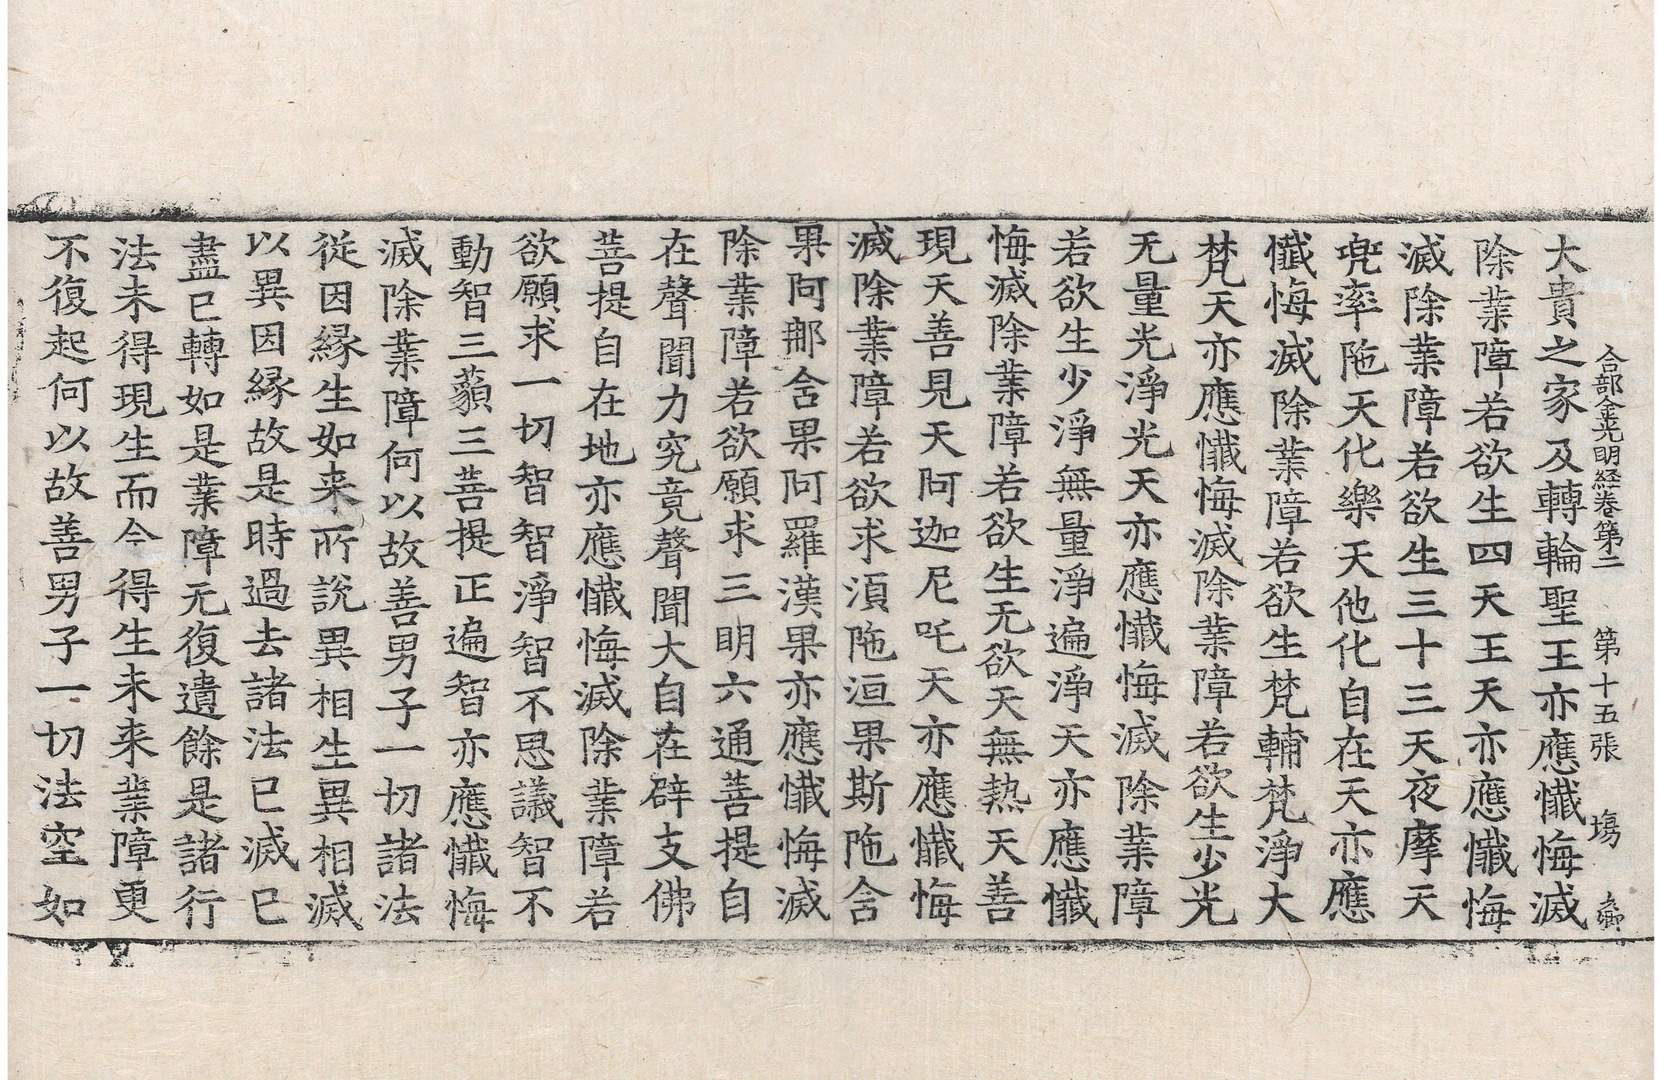 合部金光明経卷第二　第十五張　塲
大貴之家及轉輪聖王亦應懺悔滅
除業障若欲生四天王天亦應懺悔
滅除業障若欲生三十三天夜摩天
兜率陁天化樂天他化自在天亦應
懺悔滅除業障若欲生梵輔梵淨大
梵天亦應懺悔滅除業障若欲生少光
无量光淨光天亦應懺悔滅除業障
若欲生少淨無量淨遍淨天亦應懺
悔滅除業障若欲生无欲天無熱天善
現天善見天阿迦尼吒天亦應懺悔
滅除業障若欲求湏陁洹果斯陁含
果阿那含果阿羅漢果亦應懺悔滅
除業障若欲願求三明六通菩提自
在聲聞力究竟聲聞大自在辟支佛
菩提自在地亦應懺悔滅除業障若
欲願求一切智智淨智不思議智不
動智三藐三菩提正遍智亦應懺悔
滅除業障何以故善男子一切諸法
從因縁生如来所說異相生異相滅
以異因縁故是時過去諸法已滅已
盡已轉如是業障无復遺餘是諸行
法未得現生而今得生未来業障更
不復起何以故善男子一切法空如